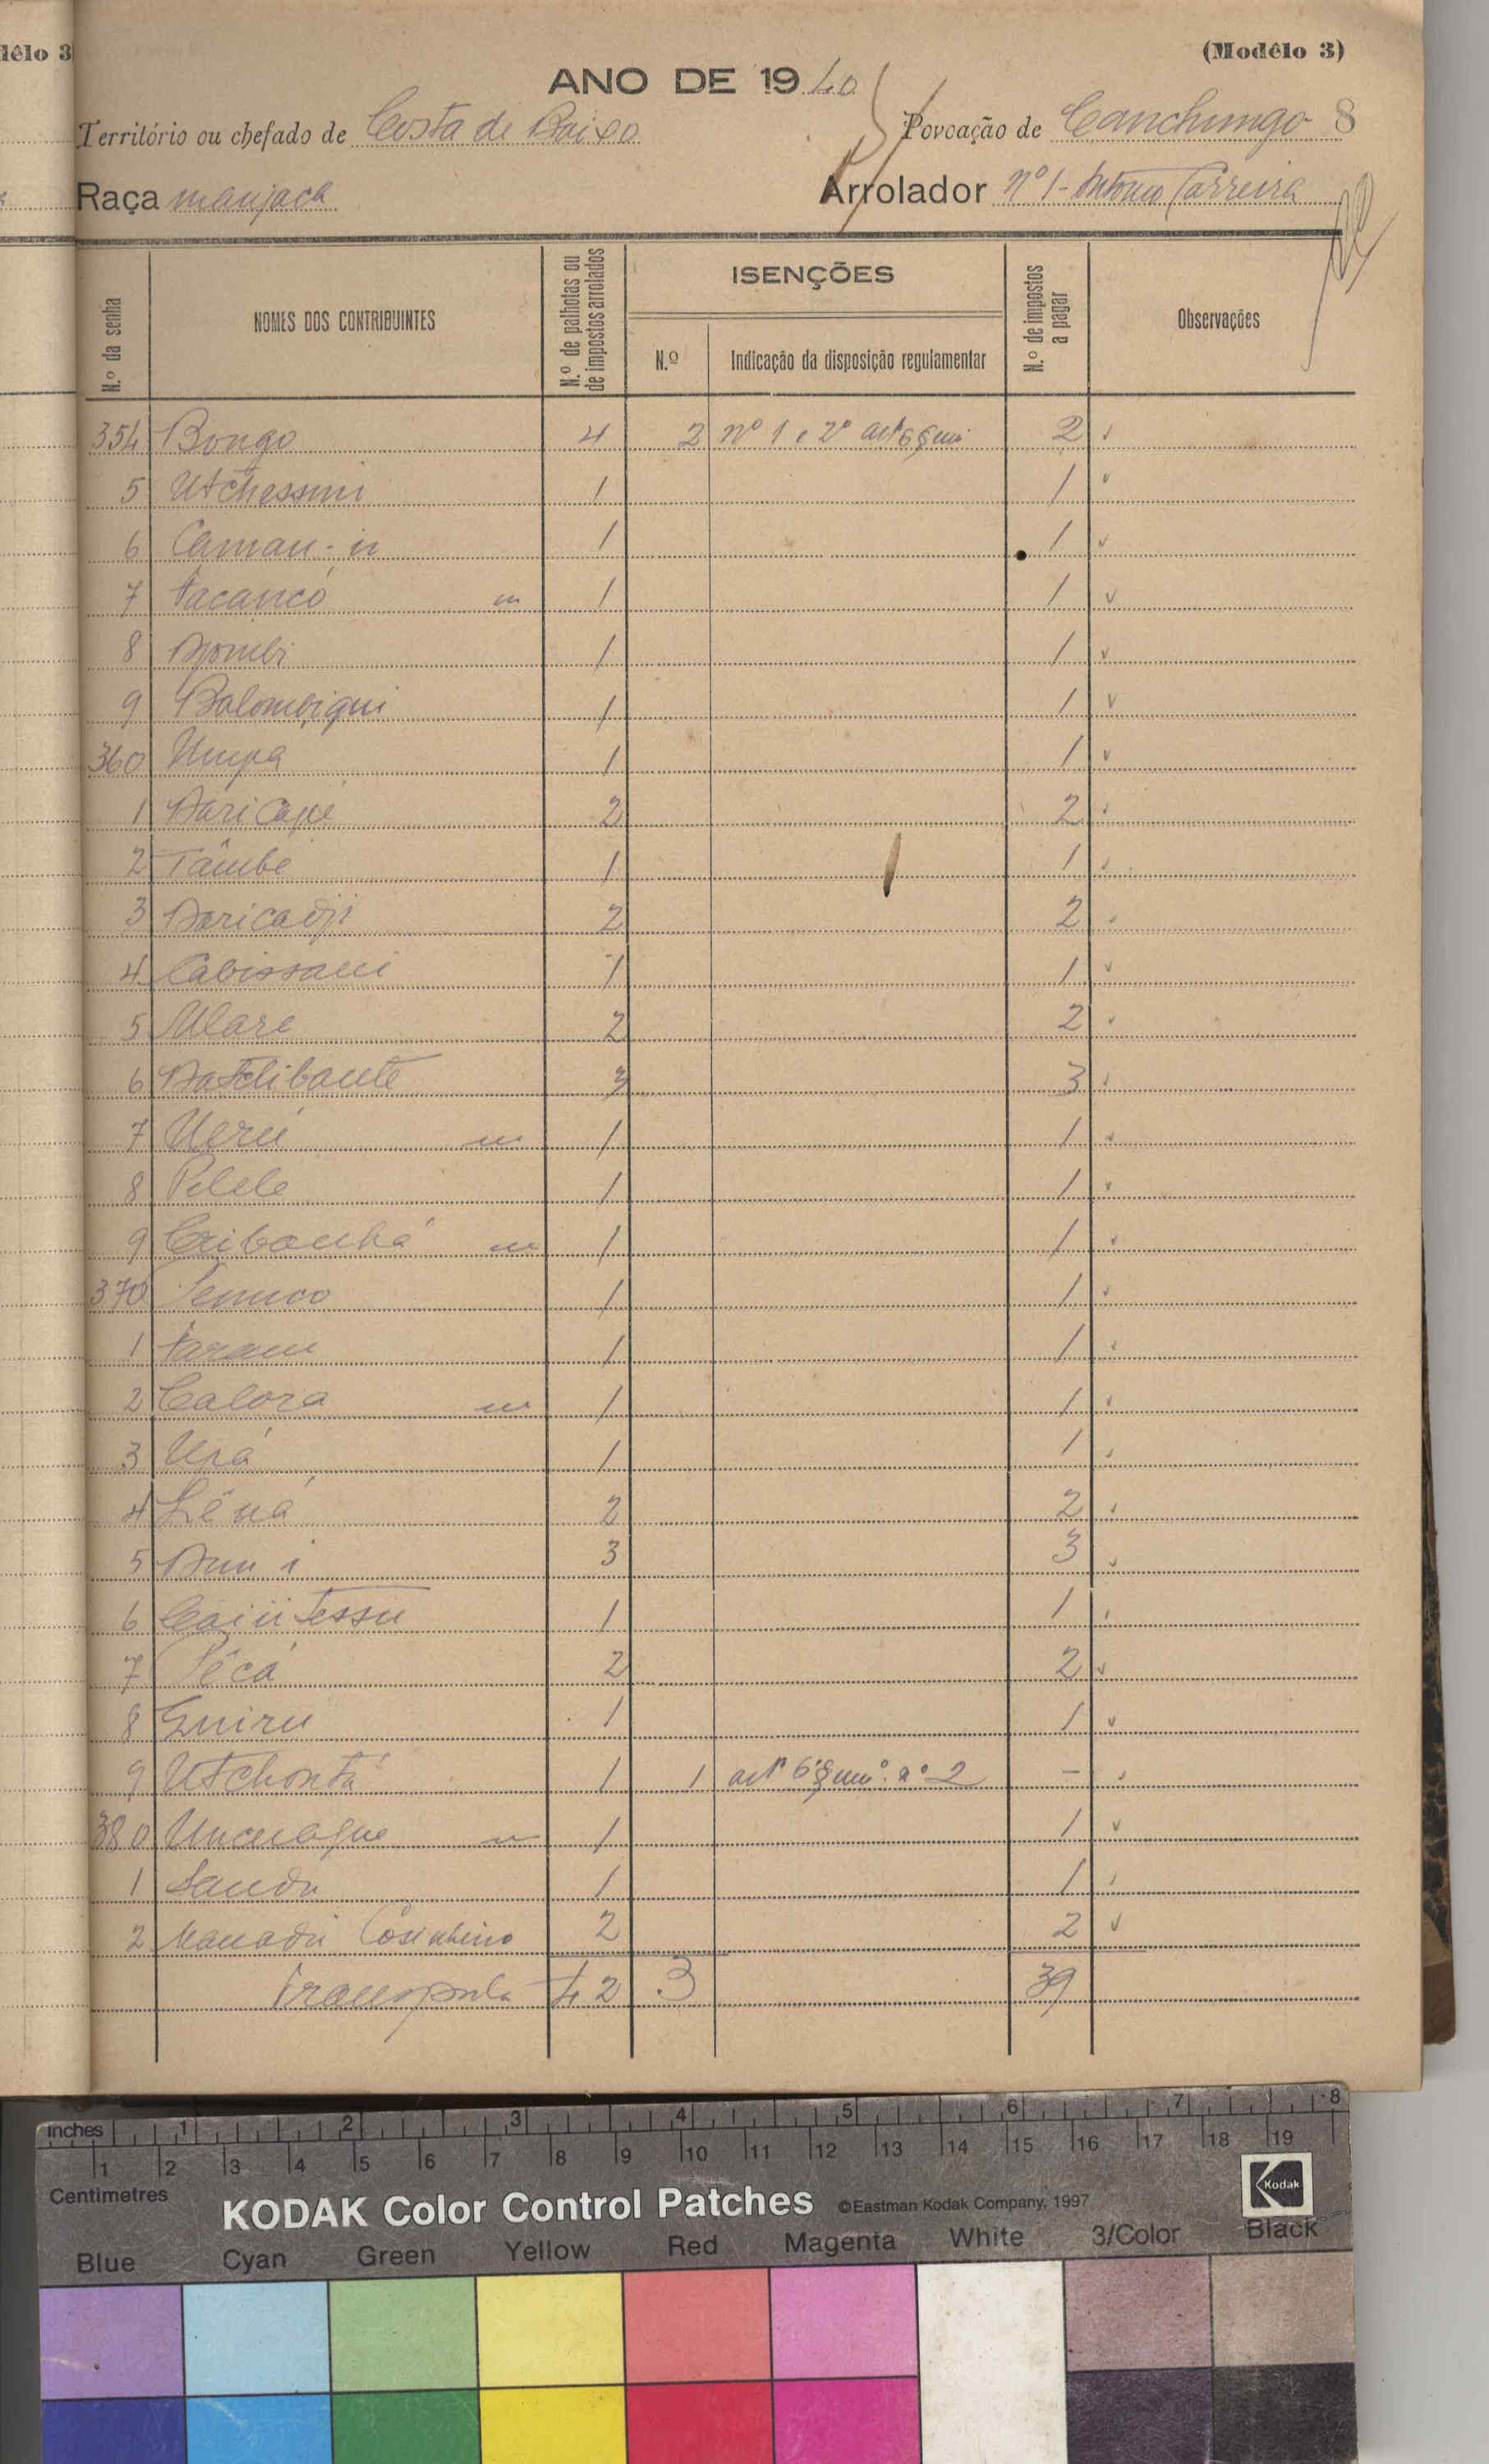 lêlo 3
(Modêlo 3)
ANO DE 1940
Território ou chefado de Costa de Baixo
Povoação de Canchungo 8
Raça manjaca
Arrolador nº 1 - António Carreira
N.º da senha
NOMES DOS CONTRIBUINTES
N.º de palhotas ou de impostos arrolados
ISENÇÕES
N.º
Indicação da disposição regulamentar
N.º de impostos a pagar
Observações
354 Bongo 4 2 nº 1 e 2º artº 6 § 2
5 Utchessini 1 1
6 Caman-in 1 1
7 Tacancó m 1 1
8 1 1
9 Balombiqui 1 1
360 Umpa 1 1
1 2 2
2 Tâmbe 1 1
3 Daricadji 2 2
4 Cabissani 1 1
5 Ulare 2 2
6 3 3
7 Uerú m 1 1
8 Pelele 1 1
9 Cribanhá m 1 1
370 1 1
1 Taram 1 1
2 Calora m 1 1
3 Urá 1 1
4 Lêná 2 2
5 3 3
6 1 1
7 Pêcá 2 2
8 Guiru 1 1
9 Utchontá 1 1 artº 6º § nº 2 -
380 m 1 1
1 Sandu 1 1
2 Mamadú Cosinheiro 2 2
Transporta 42 3 39
inches 1 2 3 4 5 6 7 8
1 2 3 4 5 6 7 8 9 10 11 12 13 14 15 16 17 18 19
Centimetres
KODAK Color Control Patches ©Eastman Kodak Company, 1997 Kodak
Blue Cyan Green Yellow Red Magenta White 3/Color Black